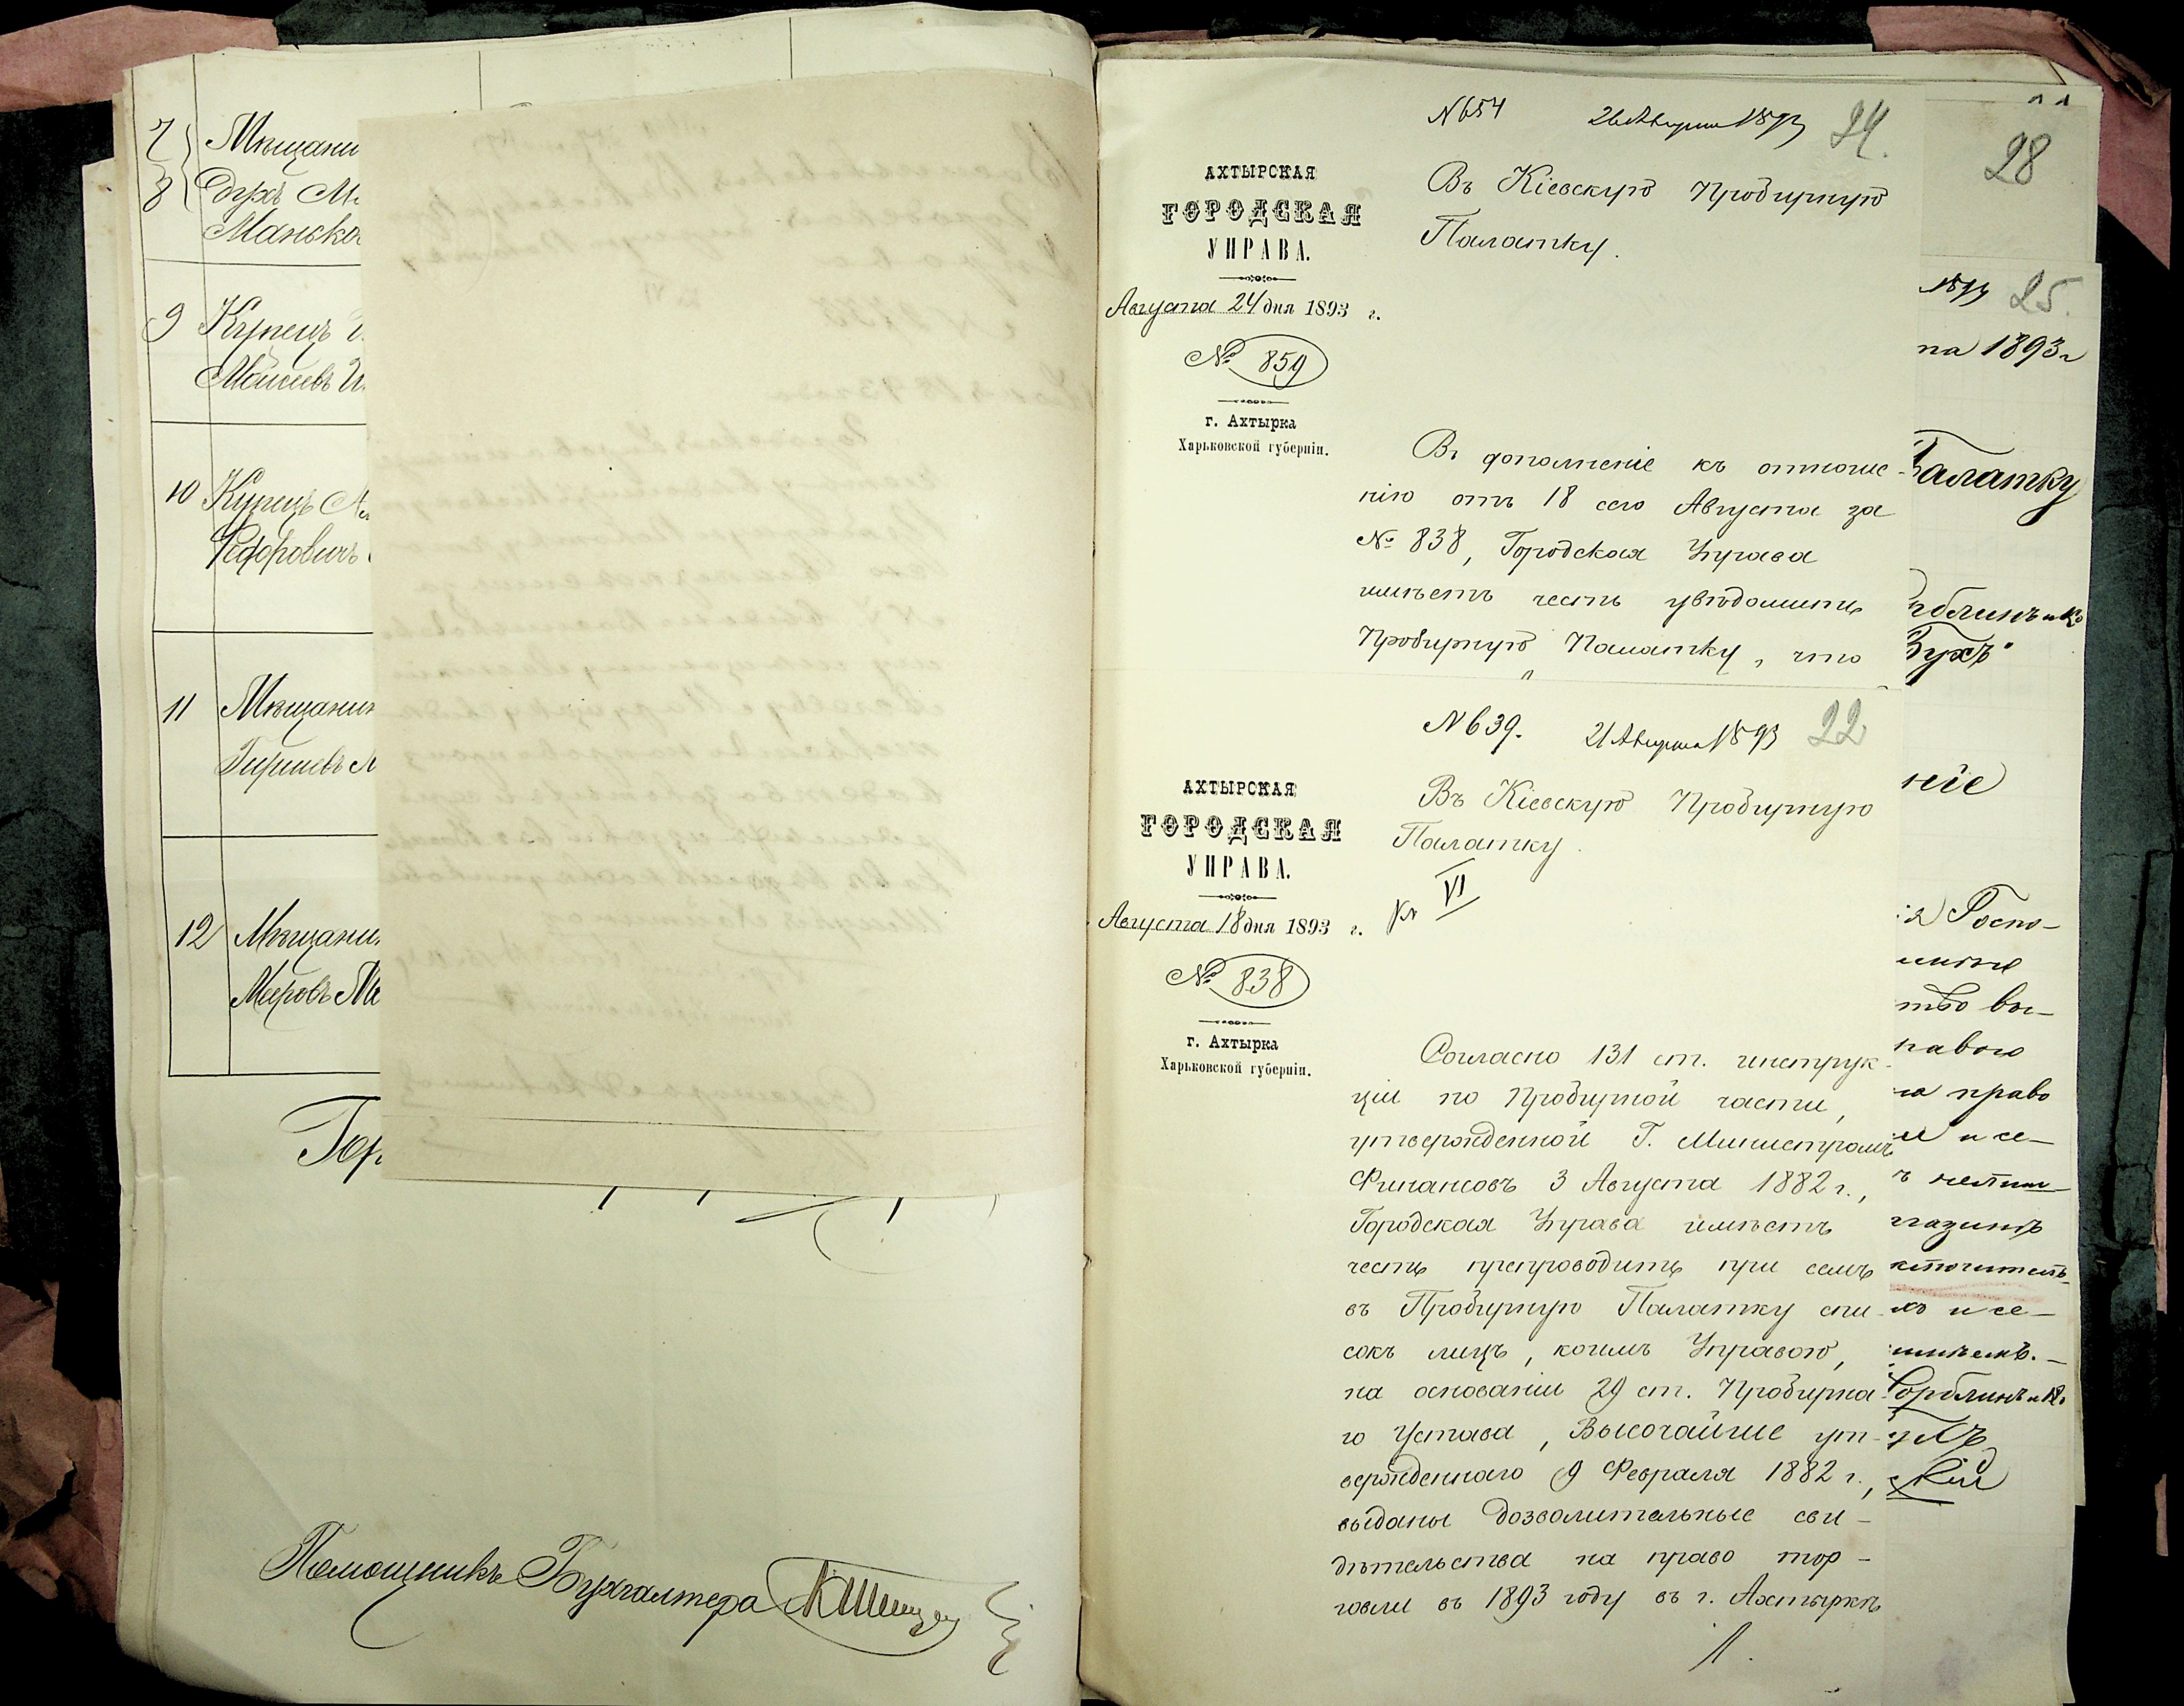 7
8
Мѣщани
Духъ М
Маньков
9
Купецъ
Мойсеевъ
10
Купецъ
Федоровичъ
11
Мѣщанин
Гиршевъ
12
Мѣщани
Меровъ
Гор
Помощникъ Бухгалтера
N 654
26 Августа 1893
24.
АХТЫРСКАЯ
ГОРОДСКАЯ
УПРАВА.
Августа 24 дня 1893 г.
№ 859
г. Ахтырка
Харьковской губерніи.
Въ Кіевскую Пробирную
Палатку.
Въ дополненіе къ отноше-
нію отъ 18 сего Августа за
№ 838, Городская Управа
имѣетъ честь увѣдомить
Пробирную Палатку, что
N 639.
21 Августа 1893
22
АХТЫРСКАЯ
ГОРОДСКАЯ
УПРАВА.
Августа 18 дня 1893 г.
№ 838
г. Ахтырка
Харьковской губерніи.
Въ Кіевскую Пробирную
Палатку.
VI
Согласно 131 ст. инструк-
ціи по Пробирной части,
утвержденной Г. Министромъ
Финансовъ 3 Августа 1882 г.,
Городская Управа имѣетъ
честь препроводить при семъ
въ Пробирную Палатку спи-
сокъ лицъ, коимъ Управою,
на основаніи 29 ст. Пробирна-
го Устава, Высочайше ут-
вержденнаго 9 Февраля 1882 г.,
выданы дозволительные сви-
дѣтельства на право тор-
говли въ 1893 году въ г. Ахтыркѣ
28
1893
25.
на 1893 г
Палатку
Бухъ
ніе
Роспо-
тво вы-
равою
на право
и се-
газинъ
ключитель
и се-
кій